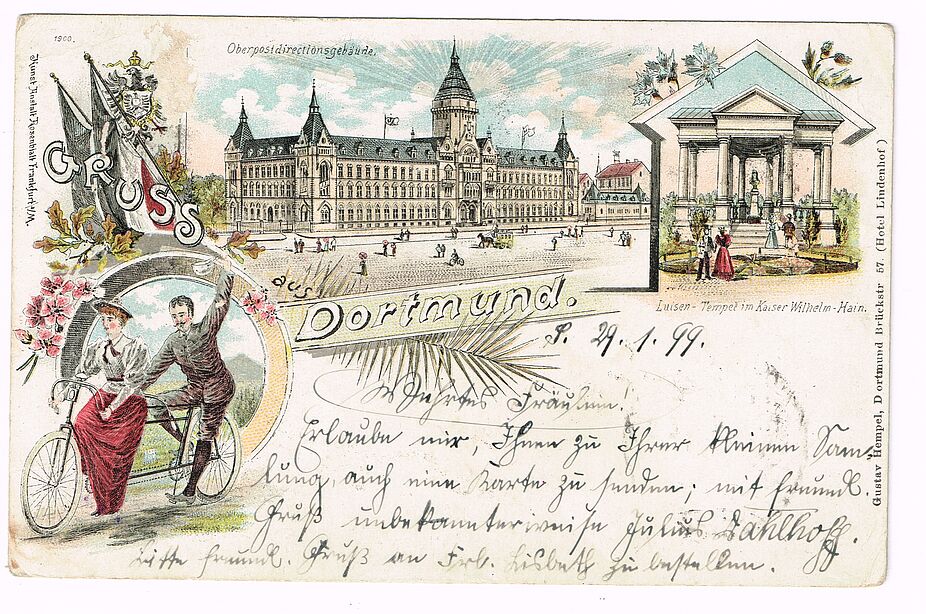 1900.
Kunst Anstalt Rosenblatt Frankfurt a/M.
Oberpostdirectionsgebäude.
GRUSS
aus
Dortmund.
Luisen-Tempel im Kaiser Wilhelm-Hain.
Gustav Hempel, Dortmund Brückstr 57. (Hotel Lindenhof)
29.1.99.
Wertes Fräulein!
Erlaube mir, Ihnen zu Ihrer kleinen Sam-
lung, auch eine Karte zu senden; mit freundl.
Gruß unbekannterweise Julius Dahlhoff.
Bitte freundl. Gruß an Frl. Lisbeth zu bestellen.